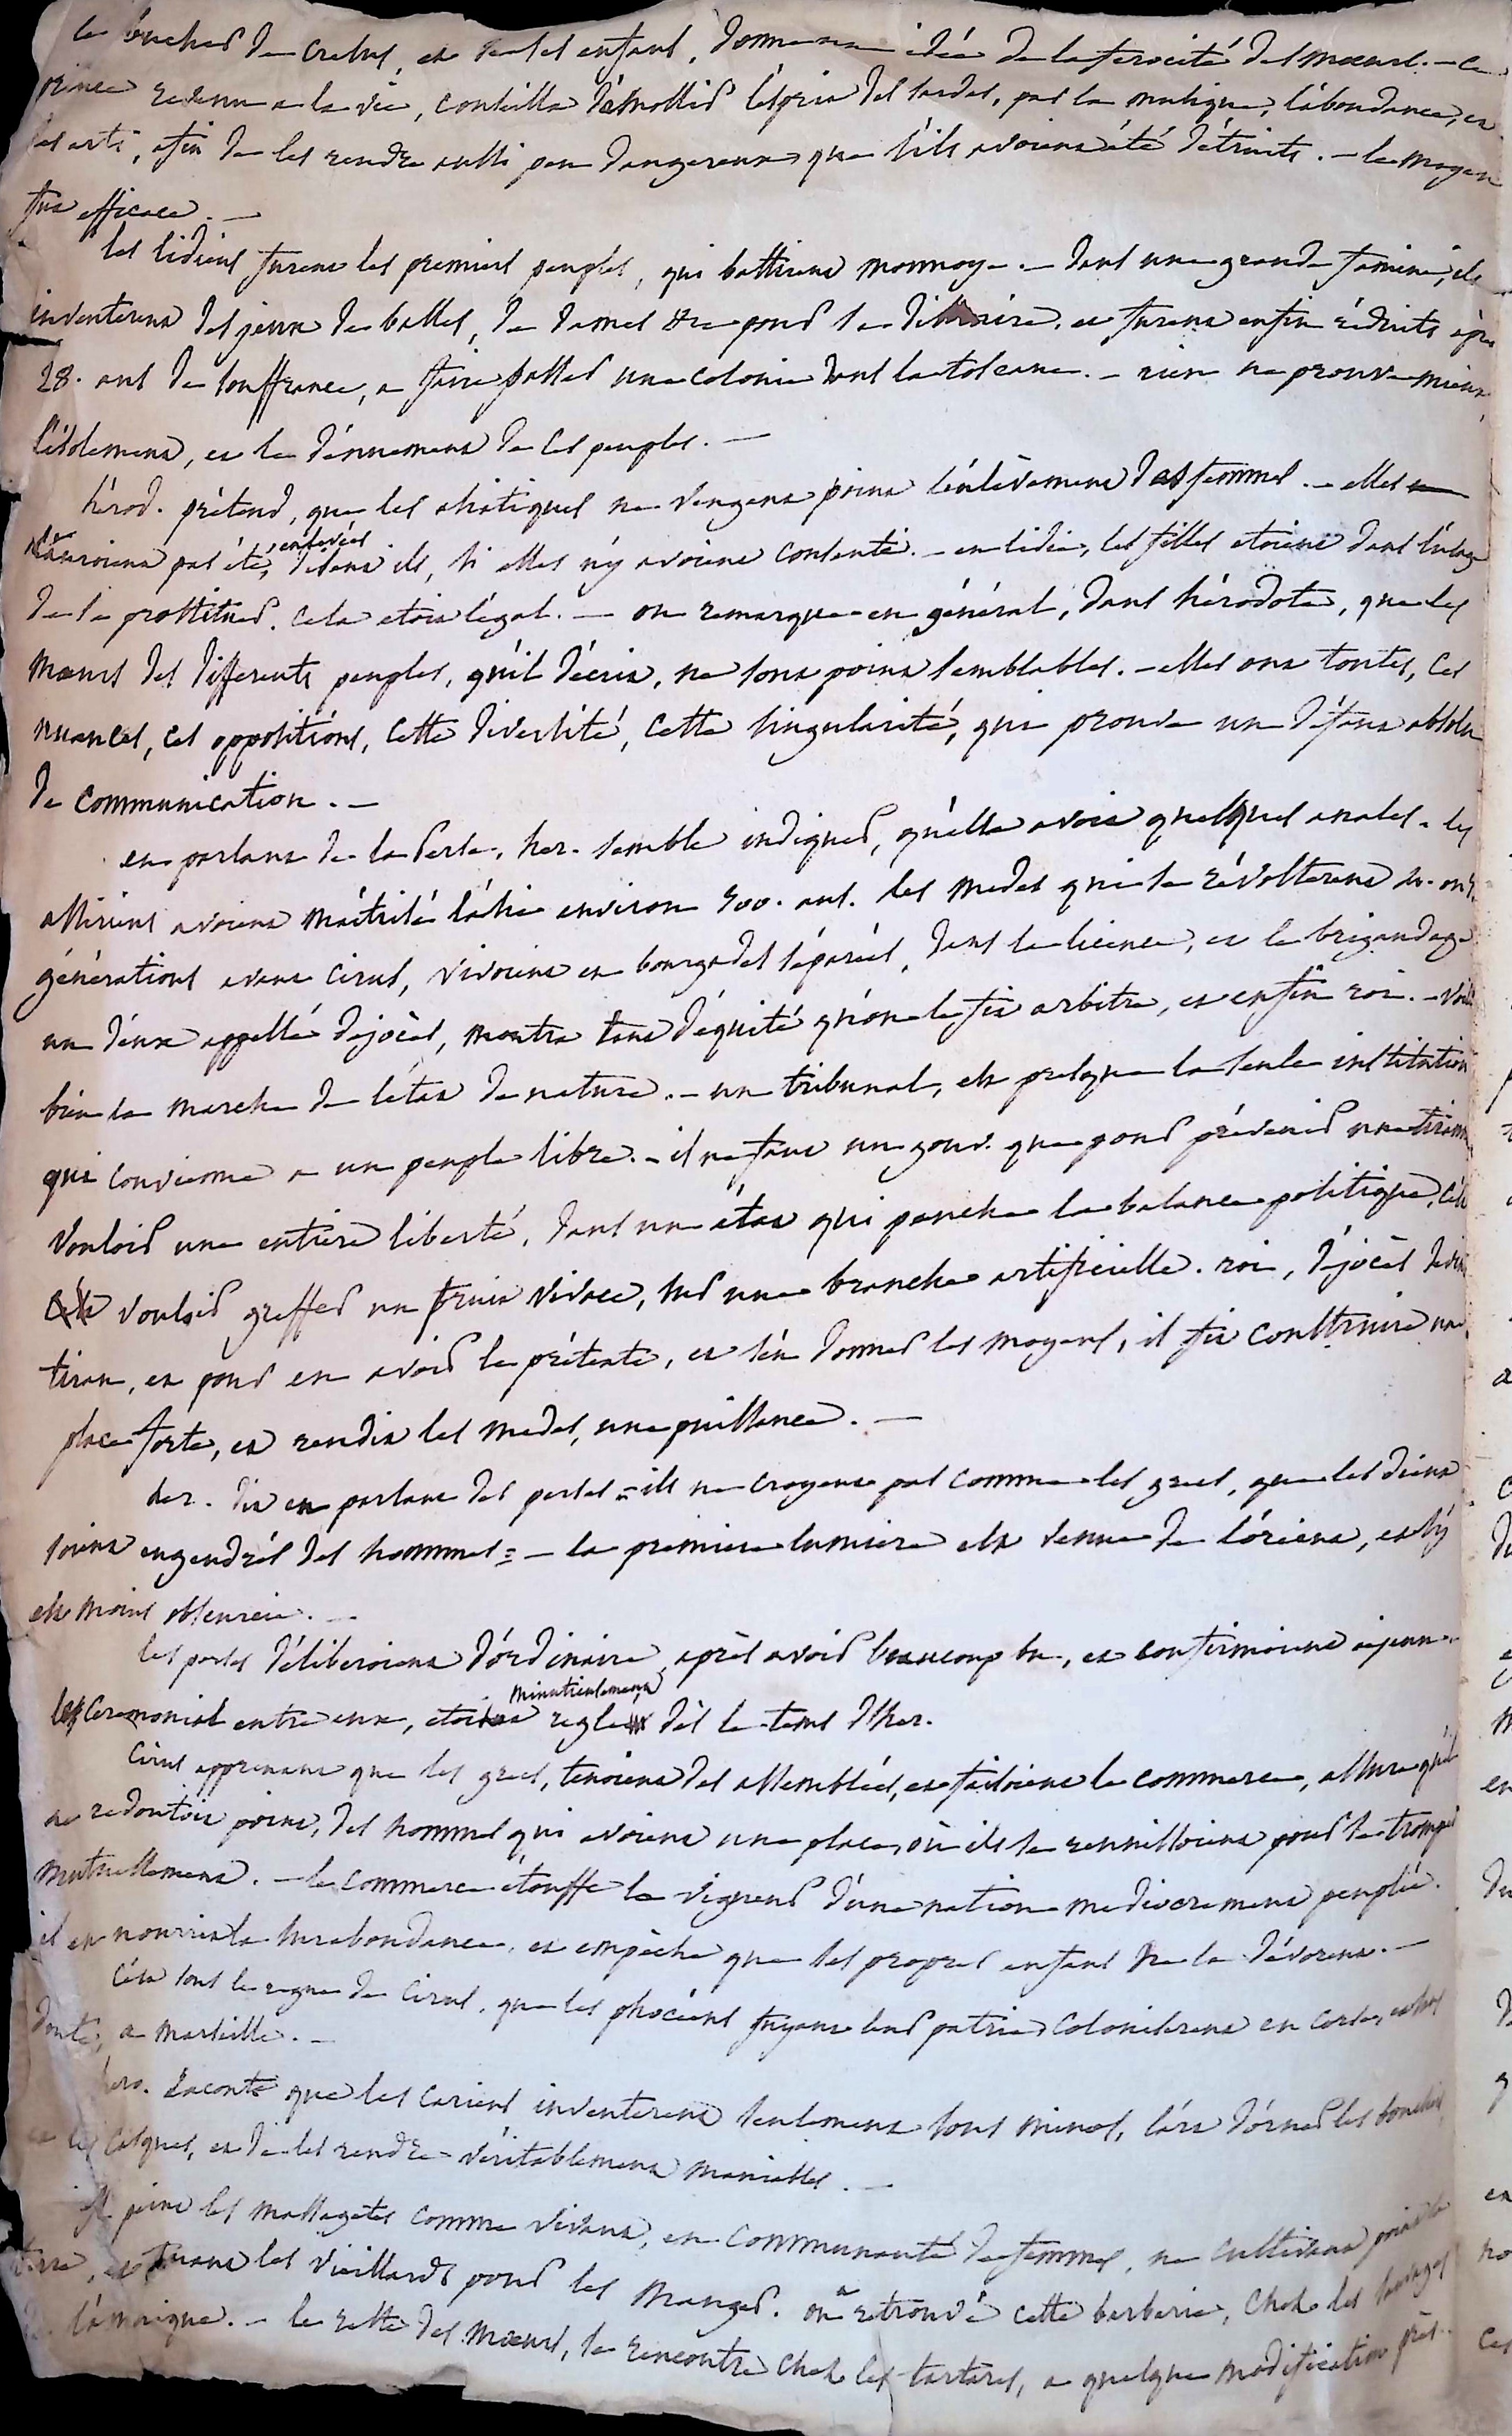 le bucher de cresus, et de ses enfans, donne une idée de la ferocité des mœurs. - ce
prince revenu a la vie, conseilla d'amollir l'esprit des sardes, par la musique, l'abondance, et
les arts, afin de les rendre aussi peu dangereux que s'ils avoient été détruits. - le moyen
fut efficace. -
les lidiens furent les premiers peuples, qui battirent monnoye. - dans une grande famine, ils
inventerent des jeux de balles, de dames &c pour se distraire. et furent enfin réduits après
28. ans de souffrance, a faire passer une colonie dans la toscane. - rien ne prouve mieux,
l'isolement, et le dénuement de ces peuples. -
hérod. prétend, que les asiatiques ne vengent point l'enlèvement des femmes. - elles
n'auroient pas été enlevées, disent ils, si elles n'y avoient consenti. - en lidie, les filles etoient dans l'usage
de se prostituer. cela etoit légal. - on remarque en général, dans hérodote, que les
mœurs des differents peuples, qu'il décrit, ne sont point semblables. - elles ont toutes, ces
nuances, ces oppositions, cette diversité, cette singularité, qui prouve un défaut absolu
de communication. -
en parlant de la perse, her. semble indiquer, qu'elle avoit quelques anales. les
assiriens avoient maîtrisé l'asie environ 500. ans. les medes qui se révolterent
générations avant cirus, vivoient en bourgades séparées, dans la licence, et le brigandage
un d'eux appellé déjocès, montra tant d'équité qu'on le fit arbitre, et enfin roi. - voilà
bien la marche de l'état de nature. - un tribunal, est presque la seule institution
qui convienne a un peuple libre. - il ne faut un gouv. que pour prévenir une tiranie
vouloir une entière liberté, dans un état qui penche la balance politique, c'est
vouloir greffer un fruit vivace, sur une branche artificielle. roi, déjocès devint
tiran, et pour en avoir le prétexte, et s'en donner les moyens, il fit construire une
place forte, et rendit les medes, une puissance. -
her. dit en parlant des perses = ils ne croyent pas comme les grecs, que les dieux
soient engendrés des hommes = - la premiere lumiere est venue de l'orient, et s'y
est moins obscurcie. -
les perses déliberoient d'ordinaire, après avoir beaucoup bu, et confirmoient a jeun
les ceremonial entre eux, etoit minutieusement reglé dès le tems d'her.
Cirus apprenant que les grecs, tenoient des assemblées, et faisoient le commerce, assura qu'il
ne redoutoit point, des hommes qui avoient une place, où ils se reunissoient pour se tromper
mutuellement. - le commerce étouffe la vigueur d'une nation mediocrement peuplée.
il en nourrit la surabondance, et empêche que ses propres enfans ne la dévorent. -
c'est sous le regne de Cirus, que les phocéens fuyant leur patrie, coloniserent en corse, et sans
doute, a marseille. -
hero. raconte que les cariens inventerent seulement sous minos, l'art d'orner les boucliers
et les casques, et de les rendre véritablement maniables. -
il peint les massagetes comme vivant, en communauté de femmes, ne cultivant point la
terre, et tuant les vieillards pour les manger. on a retrouvé cette barbarie, chez les sauvages
de l'amérique. - le reste des mœurs, se rencontre chez les tartares, a quelque modification près.